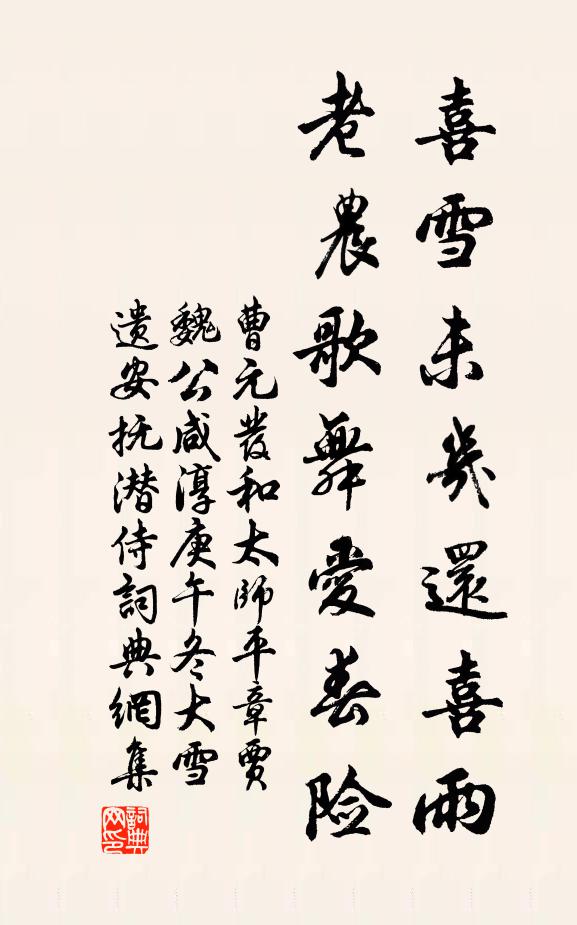 喜雪未幾還喜雨
老農歌舞愛春險
曹元發和太師平章賈
魏公咸淳庚午冬大雪
遺安抚潜侍詞典網集
詞典網印